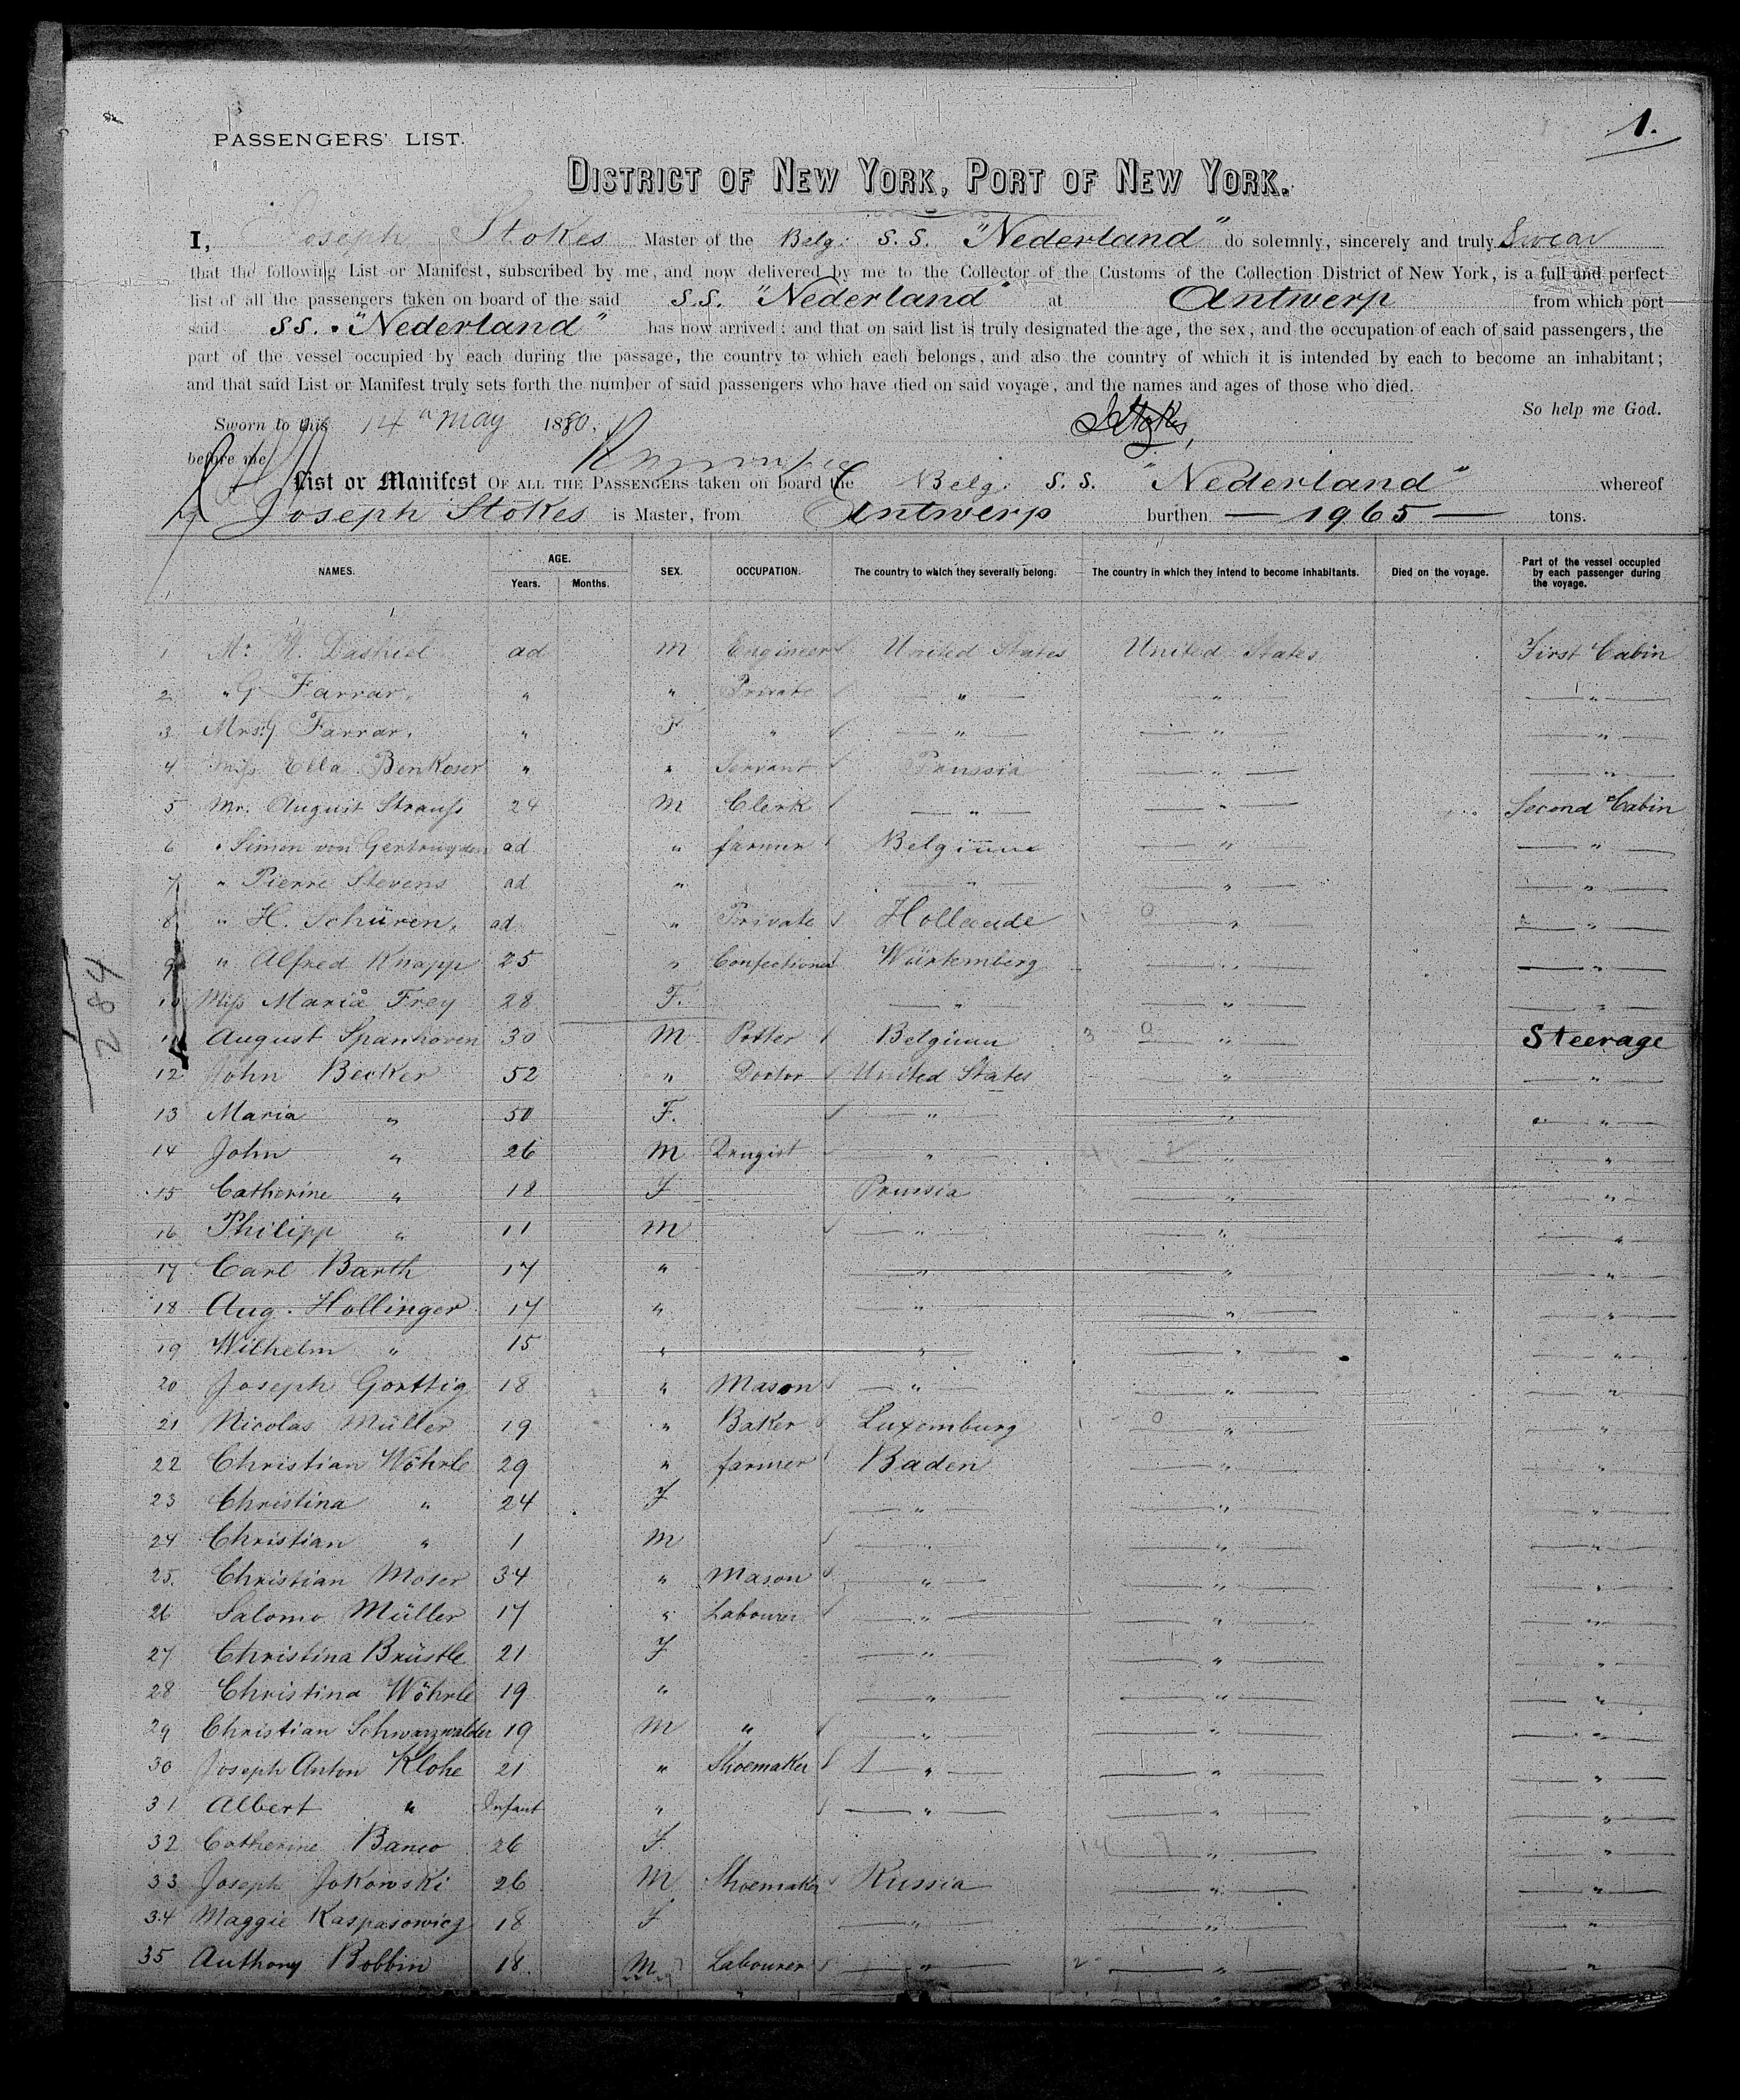 1.
PASSENGERS' LIST.
DISTRICT OF NEW YORK, PORT OF NEW YORK.
I, Joseph Stokes Master of the Belg. S.S. "Nederland" do solemnly, sincerely and truly Swear
that the following List or Manifest, subscribed by me, and now delivered by me to the Collector of the Customs of the Collection District of New York, is a full and perfect
list of all the passengers taken on board of the said S.S. "Nederland" at Antwerp from which port
said SS. "Nederland" has now arrived; and that on said list is truly designated the age, the sex, and the occupation of each of said passengers, the
part of the vessel occupied by each during the passage, the country to which each belongs, and also the country of which it is intended by each to become an inhabitant;
and that said List or Manifest truly sets forth the number of said passengers who have died on said voyage, and the names and ages of those who died.
So help me God.
Sworn to this 14th May 1880, JStokes,
before me
List or Manifest OF ALL THE PASSENGERS taken on board the Belg. S.S. "Nederland" whereof
Joseph Stokes is Master, from Antwerp burthen — 1965 — tons.
NAMES. AGE. Years. Months. SEX. OCCUPATION. The country to which they severally belong. The country in which they intend to become inhabitants. Died on the voyage. Part of the vessel occupied by each passenger during the voyage.
1 Mr. H. Dashiel ad M Engineer United States United States First Cabin
2 " G Farrar. " " Private — " — — " — — " —
3 Mrs. G Farrar. " F " — " — — " — — " —
4 Miss Ella Benkeser " " Servant Prussia — " — — " —
5 Mr. August Strauss 24 M Clerk — " — — " — Second Cabin
6 " Simon von ad " farmer Belgium — " — — " —
7 " Pierre Stevens ad " — " — — " — — " —
8 " H. Schüren. ad " Private Hollande — " — — " —
9 " Alfred Knapp 25 " Confectioner Würtemberg — " — — " —
10 Miss Maria Frey 28 F. " — " — — " —
11 August Spanhoven 30 M Potter Belgium — " — Steerage
12 John Becker 52 " Doctor United States — " — — " —
13 Maria " 50 F. — " — — " — — " —
14 John " 26 M Drugist — " — — " — — " —
15 Catherine " 18 F Prussia — " — — " —
16 Philipp " 11 M — " — — " — — " —
17 Carl Barth 17 " — " — — " — — " —
18 Aug. Hollinger 17 " — " — — " — — " —
19 Wilhelm " 15 " — " — — " — — " —
20 Joseph Gorttig 18 " Mason — " — — " — — " —
21 Nicolas Müller 19 " Baker Luxemburg — " — — " —
22 Christian Wöhrle 29 " farmer Baden — " — — " —
23 Christina " 24 F — " — — " — — " —
24 Christian " 1 M — " — — " — — " —
25. Christian Moser 34 " Mason — " — — " — — " —
26 Salomo Müller 17 " Labourer — " — — " — — " —
27 Christina Brüstle 21 F — " — — " — — " —
28 Christina Wöhrle 19 " — " — — " — — " —
29 Christian Schwarzwalder 19 M " — " — — " — — " —
30 Joseph Anton Klohe 21 " Shoemaker — " — — " — — " —
31 Albert " Infant " — " — — " — — " —
32 Catherine Banco 26 F. — " — — " —
33 Joseph Jokowski 26 M Shoemaker Russia — " — — " —
34 Maggie Kaspasowicz 18 F — " — — " — — " —
35 Anthony Bobbin 18 M Labourer — " — — " — — " —
284